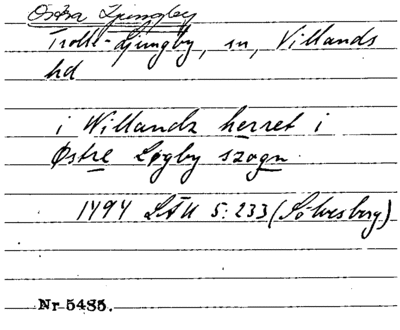 Östra Ljungby
Trolle-Ljungby, sn, Villands
hd
i Willandz herret i
Østre Løgby szogn
1494 LÄU 5:233 (Sölvesborg)
Nr 5485.